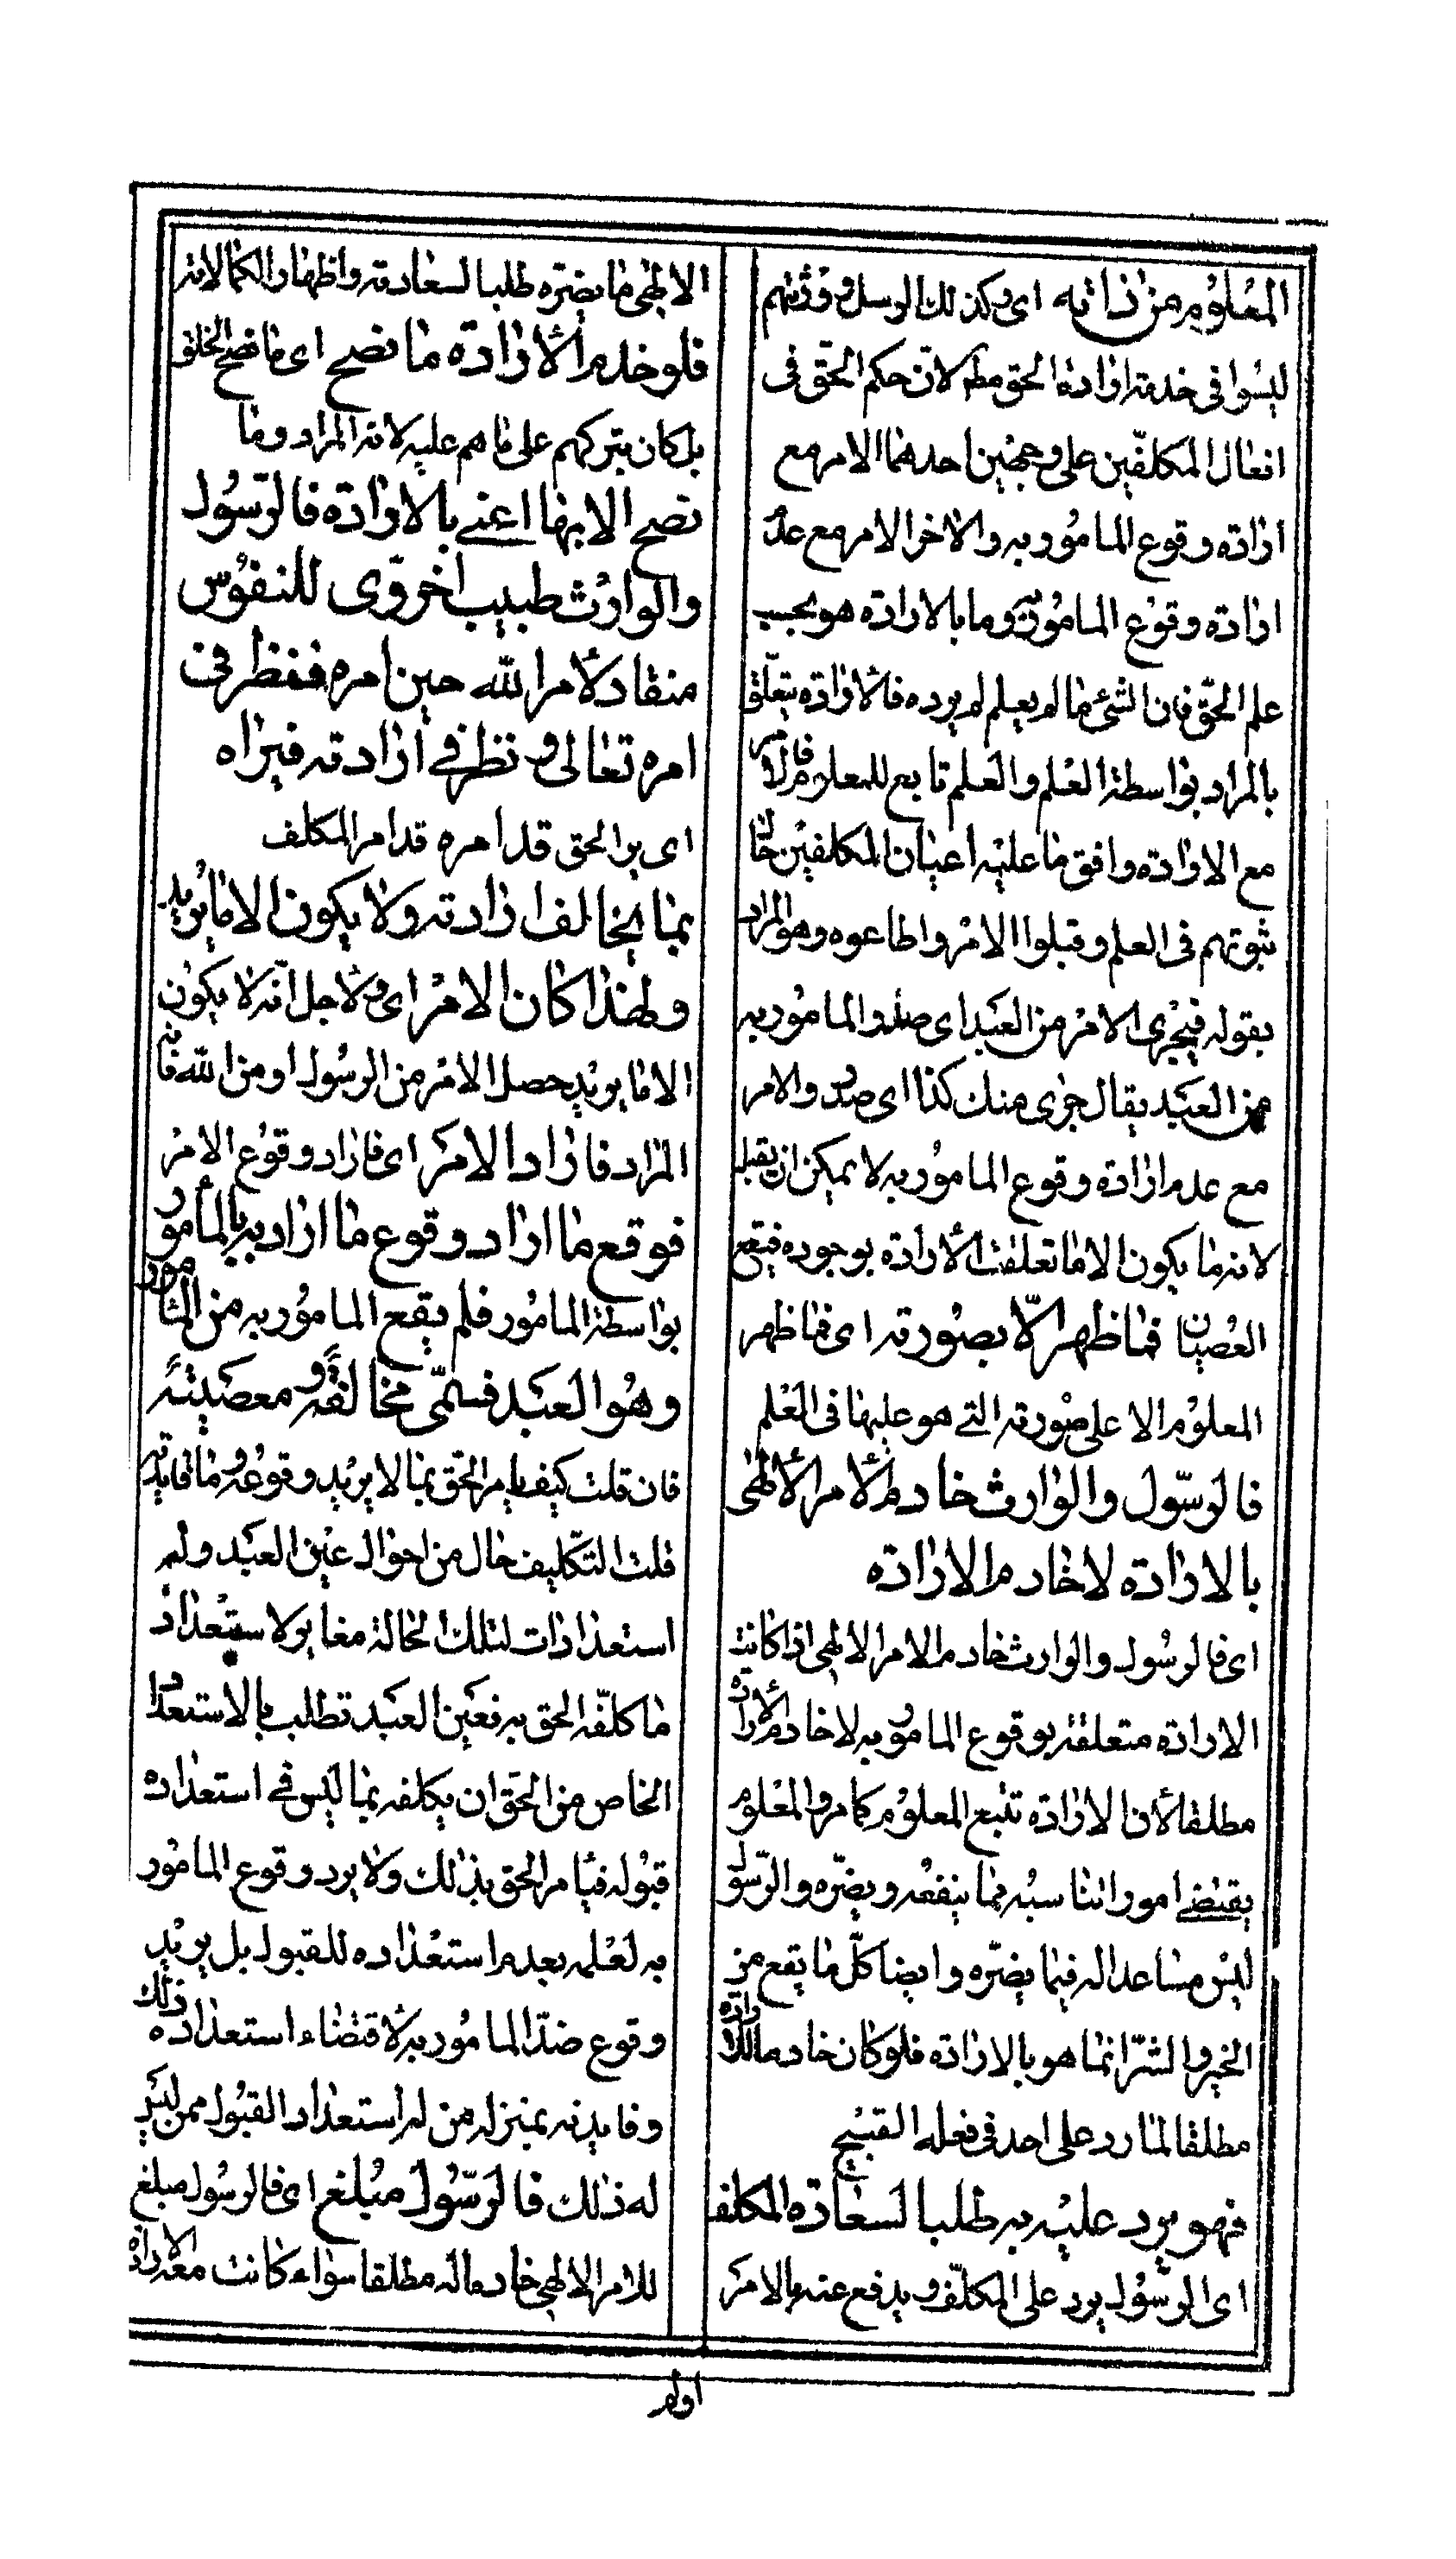 المعلوم من ذاته اى وكذلك الرسل وورثتهم
ليسوا فى خدمة ارادة الحق مطلقا لان حكم الحقّ فى
افعال المكلفّين على وجهين احدهما الامر مع
ارادة وقوع المامور به والاخر الامر مع عدم
ارادة وقوع المامور به وما بالارادة هو بحسب
علم الحقّ فان الشئ ما لم يعلم لم يرده فالارادة يتعلّق
بالمراد بواسطة العلم والعلم تابع للمعلوم فالامر
مع الارادة وافق ما عليه اعيان المكلفين حال
ثبوتهم فى العلم وقبلوا الامر واطاعوه وهو المراد
بقوله فيجرى الامر من العبد اى صدر المامور به
من العبد يقال جرى منك كذا اى صدر والامر
مع عدم ارادة وقوع المامور به لا يمكن ان يقبله
لانه ما يكون الا ما تعلقت الارادة بوجوده فيقع
العصيان فما ظهر الّا بصورته اى فما ظهر
المعلوم الا على صورته التى هو عليها فى العلم
فالرسّول والوارث خادم الامر الالهى
بالارادة لا خادم الارادة
اى فالرسول والوارث خادم الامر الالهى اذا كانت
الارادة متعلقة بوقوع المامور به لا خادم الارادة
مطلقا لان الارادة تتبع المعلوم كما مر والمعلوم
يقتضى امورا تناسبه مما ينفعه ويضرّه والرّسول
ليس مساعدا له فيما يضرّه وايضا كلّ ما يقع من
الخير والشرّ انما هو بالارادة فلو كان خادما للارادة
مطلقا لما رد على احد فى فعله القبيح
فهو يرد عليه به طلبا لسعادة المكلف
اى الرسّول يرد على المكلّف ويدفع عنه بالامر
الالهى ما يضرّه طلبا لسعادته واظهارا لكمالاته
فلو خدم الارادة ما نصح اى ما نصح الخلق
بل كان يتركهم على ما هم عليه لانه المراد وما
نصح الا بها اعنى بالارادة فالرّسول
والوارث طبيب اخروّى للنفوس
منقاد لامر الله حين امره فنظر فى
امره تعالى ونظر فى ارادته فيراه
اى يرى الحق قد امره قد امر المكلف
بما يخالف ارادته ولا يكون الا ما يريد
ولهذا كان الامر اى ولاجل انّه لا يكون
الا ما يريد حصل الامر من الرسول او من الله فانه
المراد فاراد الامر اى فاراد وقوع الامر
فوقع ما اراد وقوع ما اراد به بالمأمور
بواسطة المامور فلم يقع المامور به من المامور
وهو العبد فسمّى مخالفة ومعصية
فان قلت كيف يامر الحق بما لا يريد وقوعه وما فايدته
قلت التكليف حال من احوال عين العبد ولم
استعدادات لتلك الحالة مغاير لاستعداد
ما كلّفه الحق به فعين العبد تطلب بالاستعداد
الخاص من الحق ان يكلفه بما ليس فى استعداده
قبوله فيامر الحق بذلك ولا يرد وقوع المامور
به لعلمه بعدم استعداده للقبول بل يريد
وقوع ضدّ المامور به لاقتضاء استعداده ذلك
وفايدته تميز له من له استعداد القبول ممن ليس
له ذلك فالرسّول مبلغ اى فالرسول مبلغ
للامر الالهى خادما له مطلقا سواء كانت معه الارادة
اولم